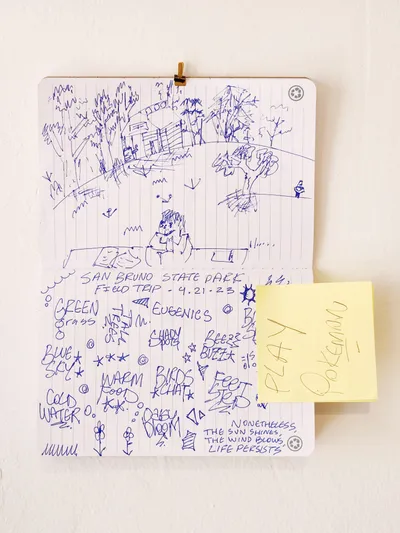 SAN BRUNO STATE PARK
FIELD TRIP - 4.21.23
GREEN
grass
TALL
TREES
EUGENICS
SHADY
SPOTS
BEEZE
BUZZ
BLUE
SKY
WARM
FOOD
BIRDS
CHAT
FEET
STEP
COLD
WATER
BABY
BLOOM
NONETHELESS,
THE SUN SHINES,
THE WIND BLOWS,
LIFE PERSISTS.
PLAY
POKEMAN